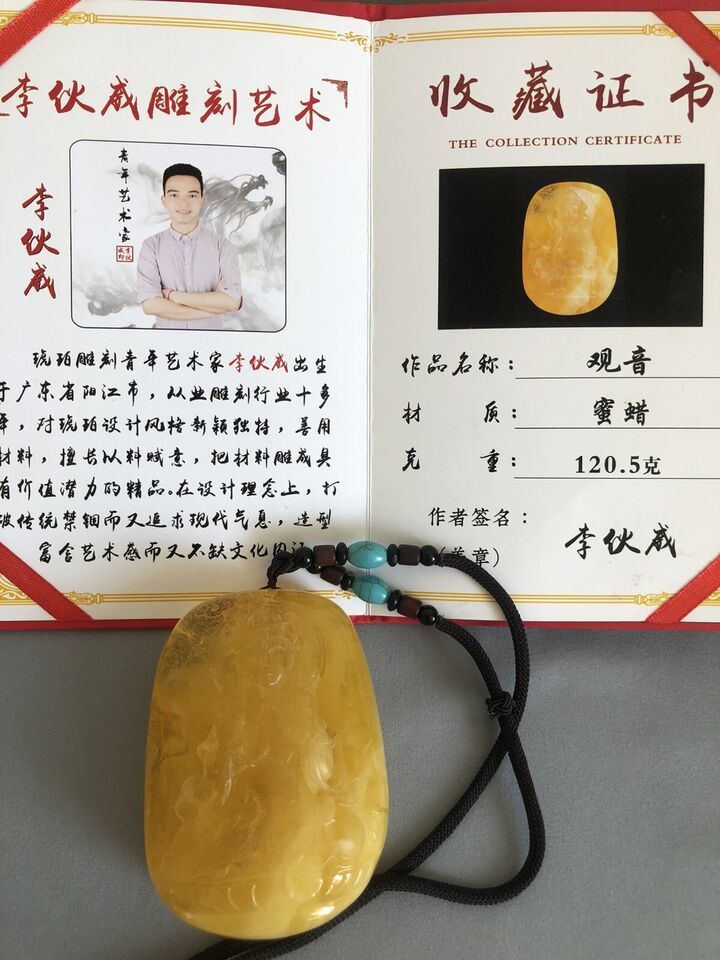 李伙威雕刻艺术
李伙威
青年艺术家
琥珀雕刻青年艺术家李伙威出生
于广东省阳江市，从业雕刻行业十多
年，对琥珀设计风格新颖独特，善用
材料，擅长以料赋意，把材料雕成具
有价值潜力的精品。在设计理念上，打
破传统禁锢而又追求现代气息，造型
富含艺术感而又不缺文化
收藏证书
THE COLLECTION CERTIFICATE
作品名称：观音
材质：蜜蜡
克重：120.5克
作者签名：
李伙威
章）